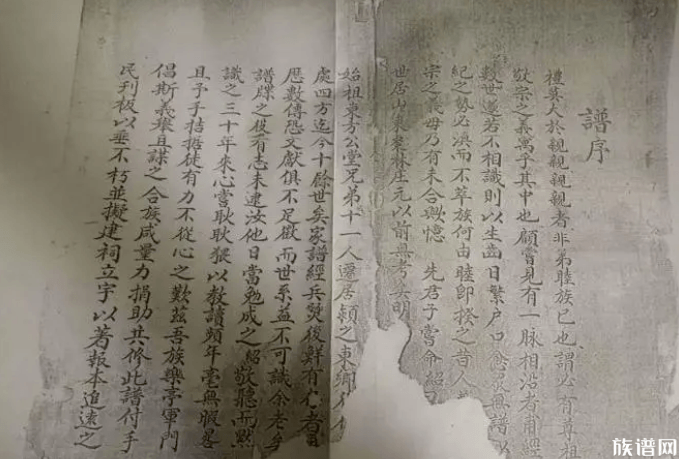 譜序
禮莫大於親親親親者非第睦族已也謂必有尊祖
敬宗之義寓乎其中也顧嘗見有一脈相沿者甫經
數世遂若不相識則以生齒日繁户口愈 無譜以
紀之勢必渙而不萃族何由睦卽揆之昔人
宗之義毋乃有未合歟憶 先君子嘗命紹
世居山東棗林庄元以前無考矣明
始祖東方公堂兄弟十一人遷居潁之東鄉
處四方迄今十餘世矣家譜經兵燹後鮮有存者
歷數傳恐文獻俱不足徵而世系益不可識余老矣
譜牒之役有志未逮汝他日當勉成之紹敬聽而默
識之三十年來心嘗耿耿狠以教讀頻年毫無暇晷
且予手拮据徒有力不從心之歎茲吾族樂亭軍門
倡斯義舉且謀之合族咸量力捐助共修此譜付手
民刊板以垂不朽並擬建祠立宇以著報本追遠之
族谱网